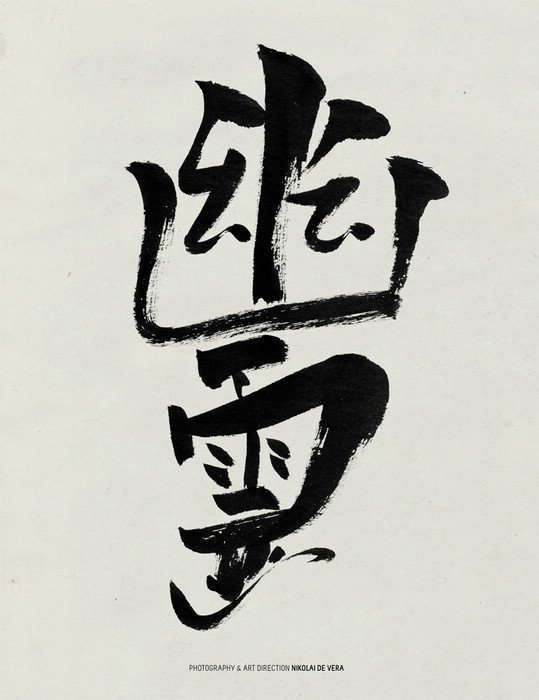 幽霊
PHOTOGRAPHY & ART DIRECTION NIKOLAI DE VERA